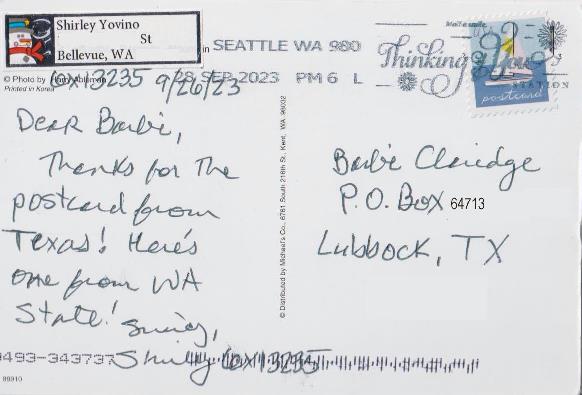 Shirley Yovino
St
Bellevue, WA
in SEATTLE WA 980
28 SEP 2023 PM 6 L
Mail a smile
Thinking of You
STATION
USA
postcard
© Photo by
Printed in Korea
13235 9/26/23
Dear Barbie,
Thanks for the
postcard from
Texas! Here's
one from WA
State!
Shirley 13235
9493-343737
89910
© Distributed by Michael's Co., 6761 South 216th St., Kent, WA 98032
Barbie Claridge
P.O. Box 64713
Lubbock, TX